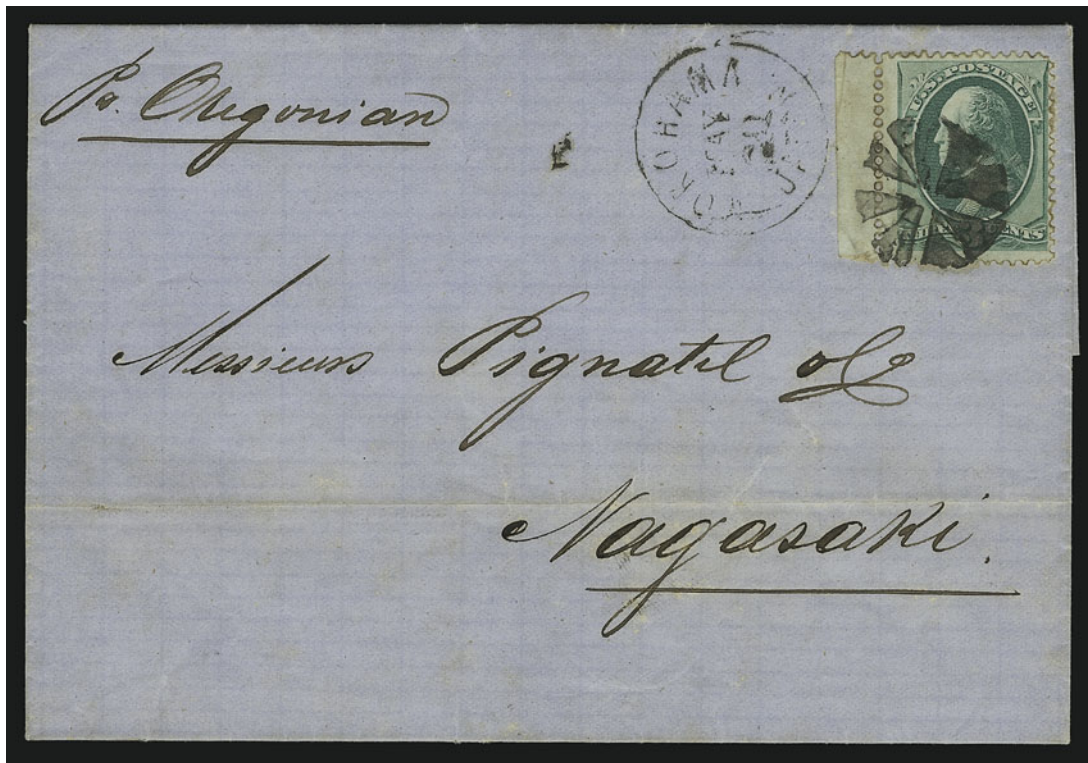 Pr. Oregonian
YOKOHAMA JAPAN
MAY
U.S. POSTAGE
THREE CENTS
Messieurs Pignatel & Co
Nagasaki.